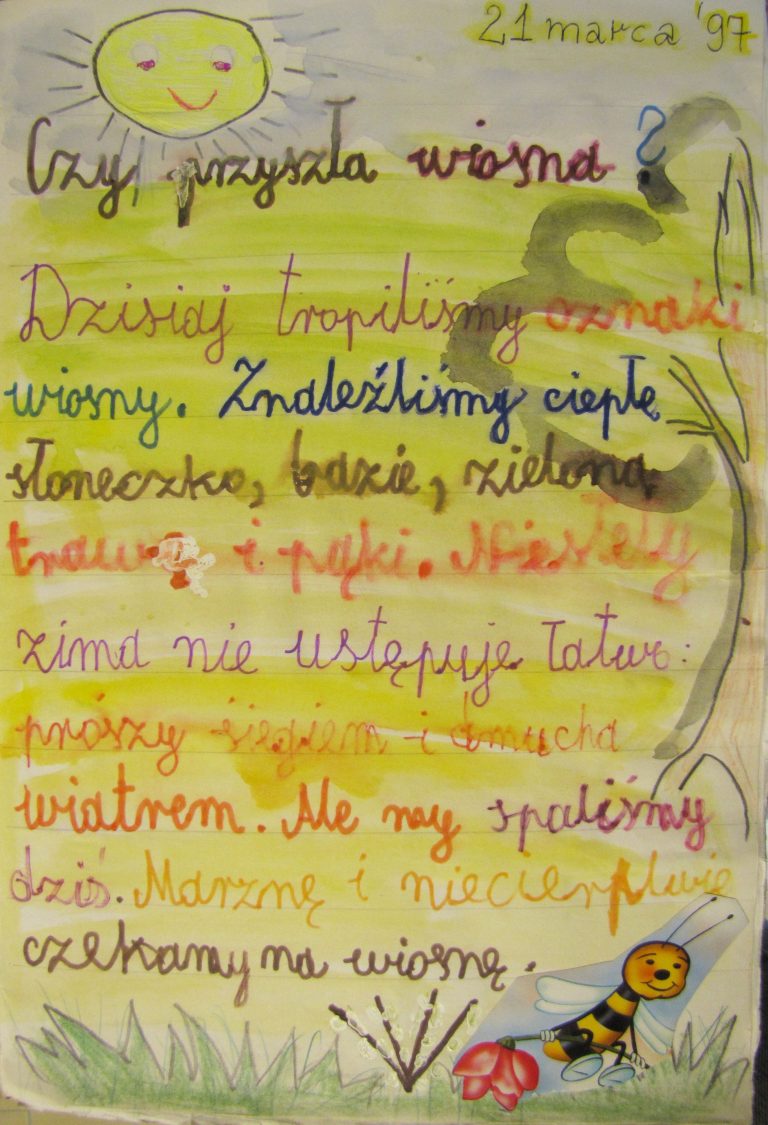 21 marca '97
Czy przyszła wiosna?
Dzisiaj tropiliśmy oznaki
wiosny. Znaleźliśmy ciepłe
słoneczko, bazie, zieloną
trawę i pąki. Niestety
zima nie ustępuje łatwo:
prószy śięgiem i dmucha
wiatrem. Ale my spaliśmy
dziś. Marznę i niecierpliwie
czekamy na wiosnę.